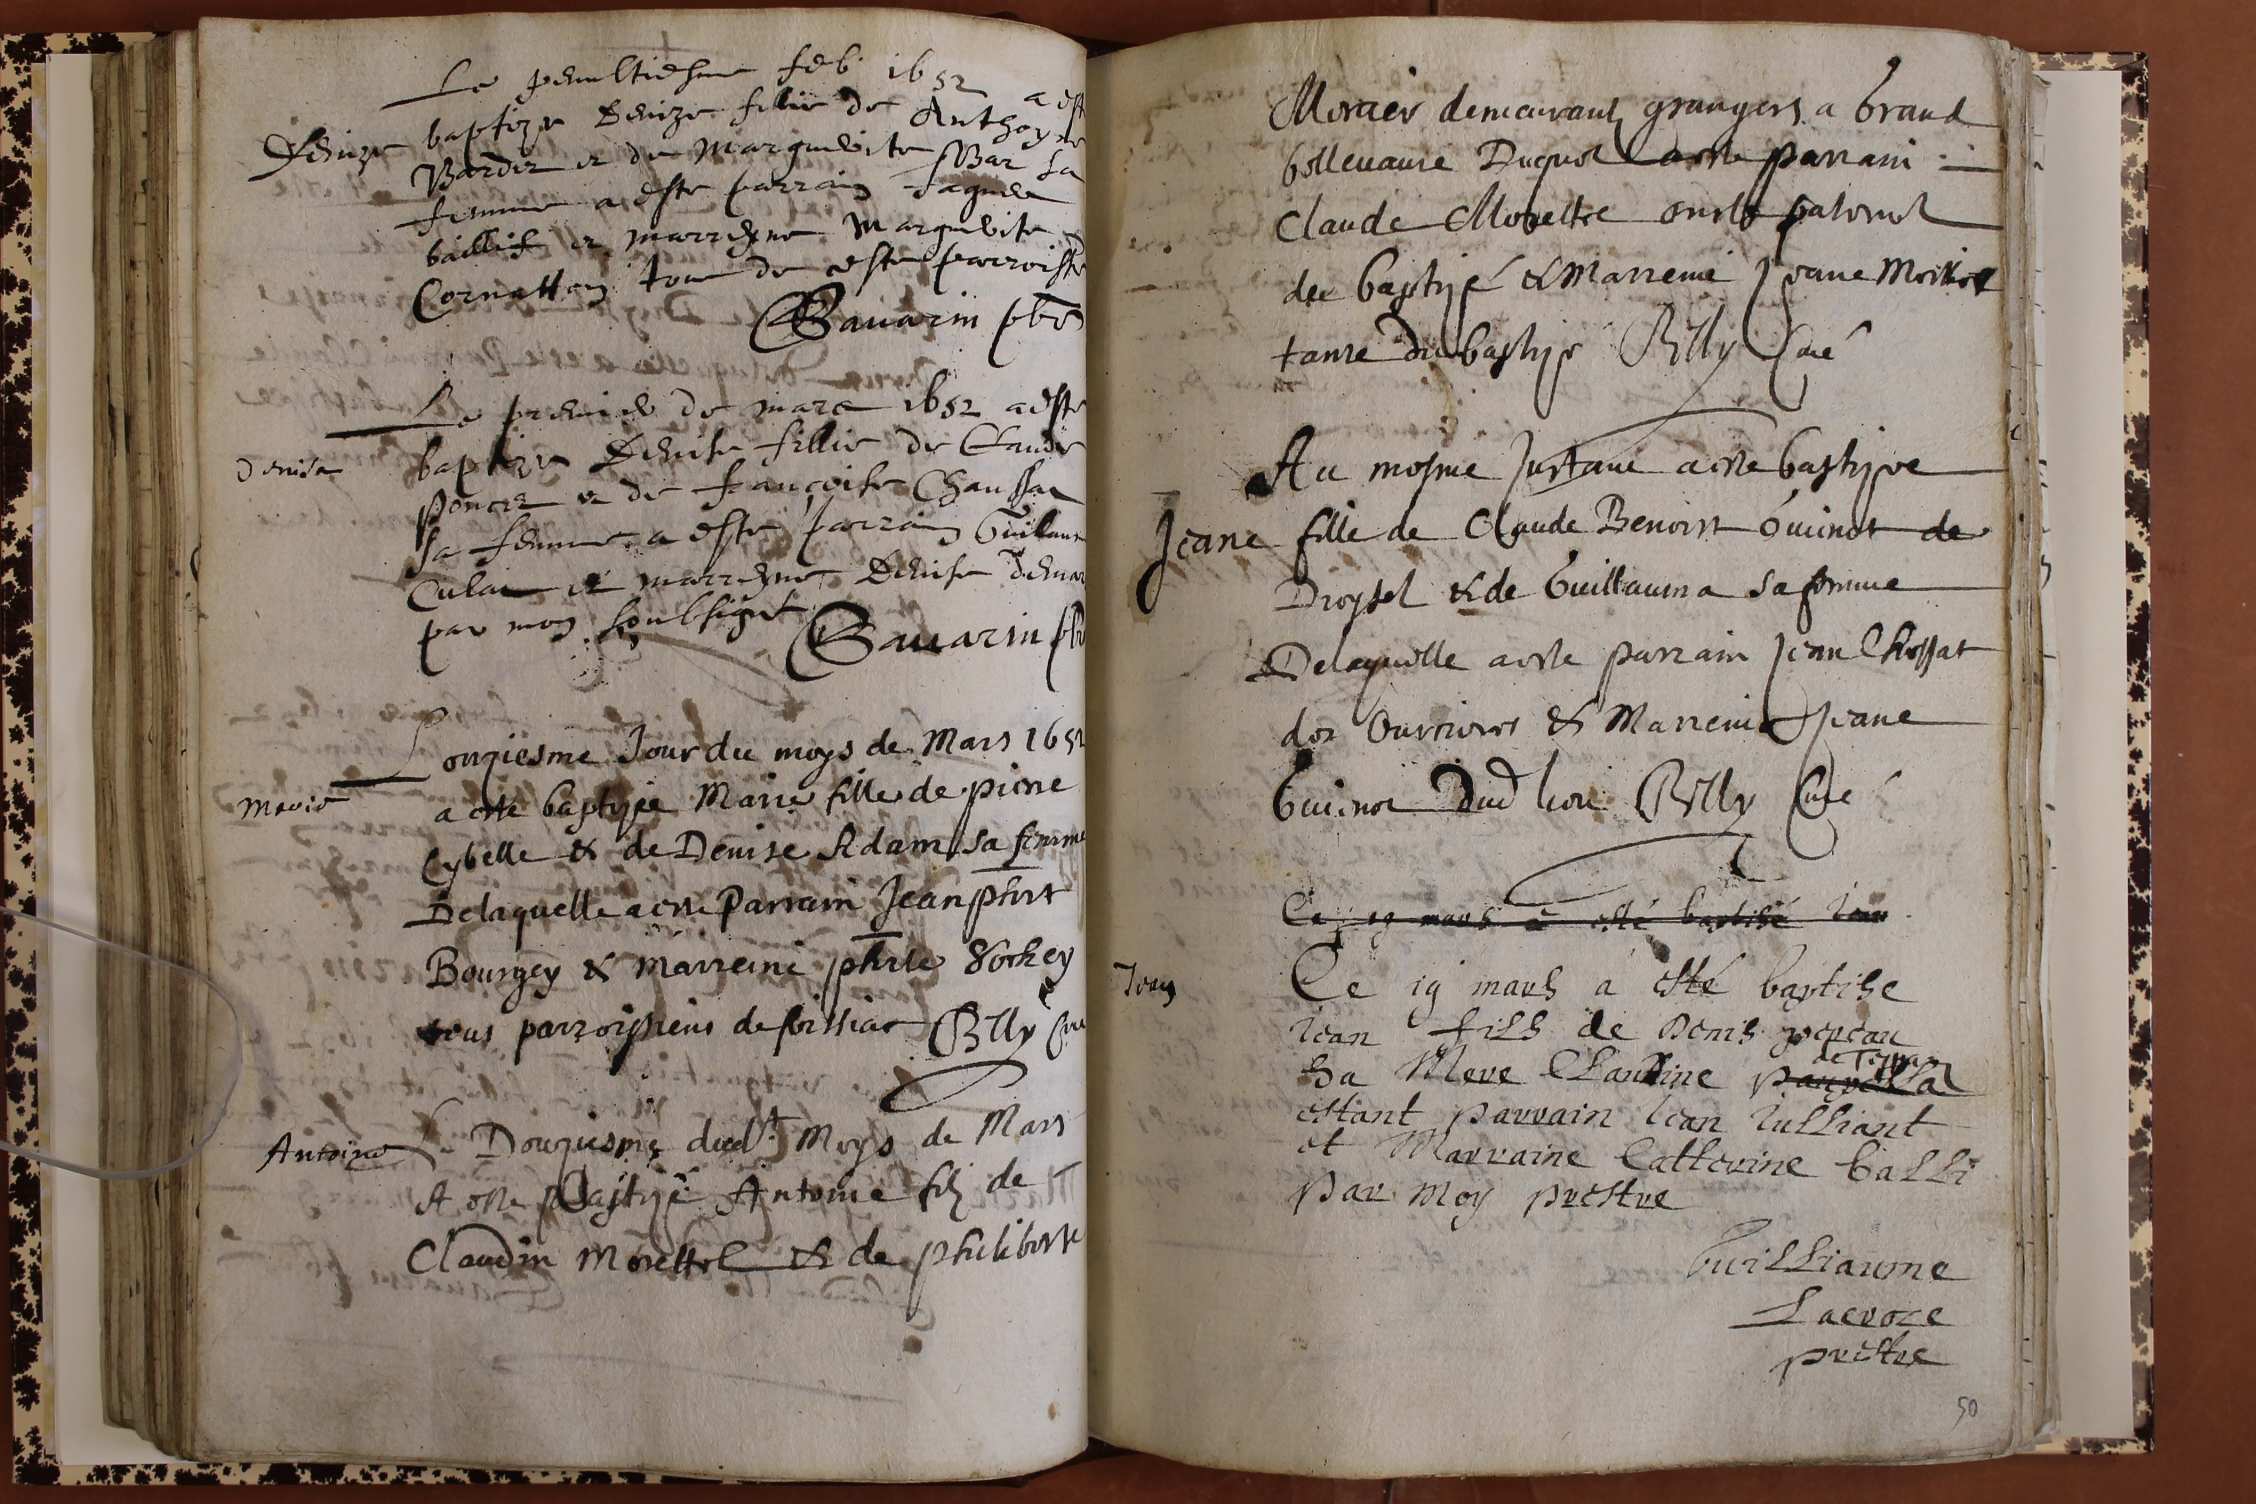 Le penultiesme feb. 1652 a este
Denize
baptize Denize fillie de Anthoyne
Bardet et de Marguerite Bar sa
femme a este parrain Jaques
baillif et marreyne Marguerite
Cornatton tou de ceste parroisse
Bavarin pbre
Le premier de mars 1652 a este
Denise
baptize Denise fillie de Claude
poncet et de francoise Chaussat
sa femme a este parrain Guilaume
Culat et marreyne Denise
par moy soubsigné
Bavarin pbr
L onziesme Jour du moys de Mars 1652
Marie
a este baptizee Marie fille de pierre
Cybelle & de Denise Adam sa femme
De laquelle a este Parrain Jean phort
Bourgey & Marreine
tous parroissiens de foissiat Billy Curé
Antoine
Le Douziesme dud.t Moys de Mars
A este Baptizé Antoine filz de
Claudin Morettel & de philiberte
Mercier demeurant grangers a Grand
Claude Morettel oncle paternel
du baptizé & Marreine Jeane
tante du baptizé Billy Curé
Au mesme Instant a este baptizee
Jeane fille de Claude Benoist Guinet de
& de Guillauma sa femme
De laquelle a este parrain Jean Chossat
& Marreine Jeane
Guinet Dud lieu Billy Curé
Ce 19 mars a esté baptisé Jean
Jean
Ce 19 mars a esté baptise
Jean fils de Denis
sa Mere Claudine
estant parrain Jean Julliant
et Marraine Catterine Balli
par Moy prestre
Guilliaume
Lacroze
prestre
50